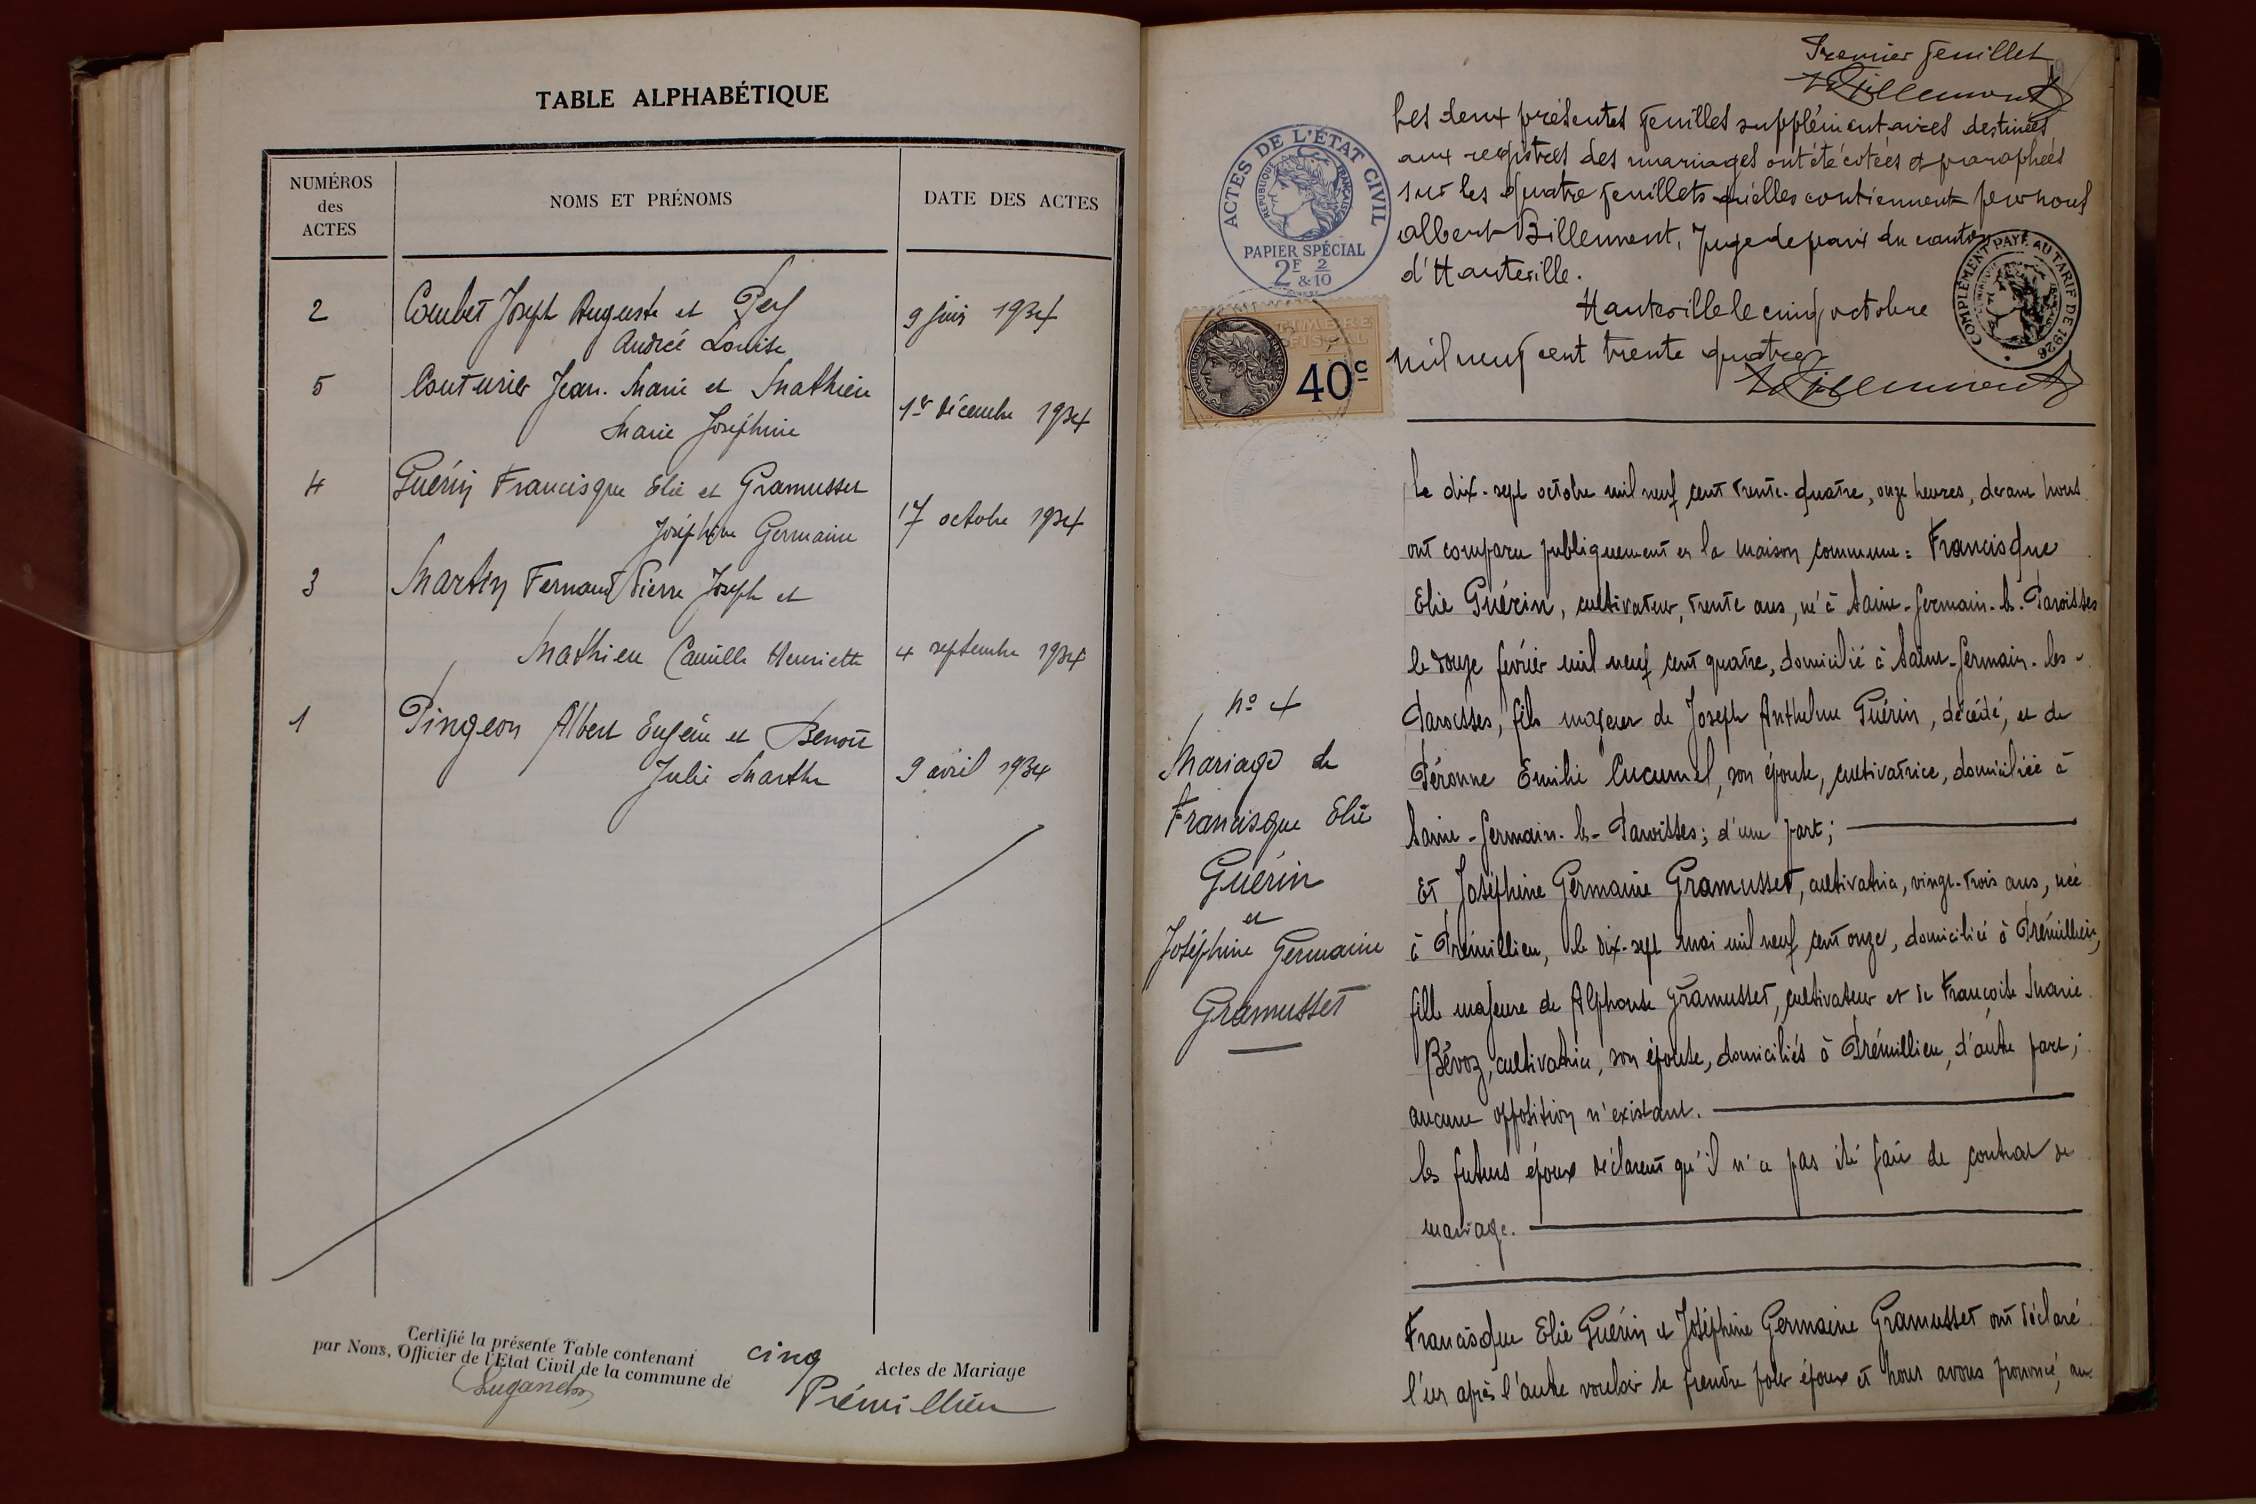 TABLE ALPHABÉTIQUE
NUMÉROS
des
ACTES
NOMS ET PRÉNOMS
DATE DES ACTES
2 Combet Joseph Auguste et
Andrée Louise
9 juin 1934
5 Couturier Jean-Marie et Mathieu
Marie Joséphine
1er décembre 1934
4 Guérin Francisque Elie et Gramusset
Joséphine Germaine
17 octobre 1934
3 Martin Fernand Pierre Joseph et
Mathieu Camille Henriette 4 septembre 1934
1 Pingeon Albert Eugène et Benoit
Julie Marthe 9 avril 1934
Certifié la présente Table contenant cinq Actes de Mariage
par Nous, Officier de l'Etat Civil de la commune de Prémillieu
Premier feuillet
Billemont
Les deux présentes feuilles supplémentaires destinées
aux registres des mariages ont été cotées et paraphées
sur les quatre feuillets qu'elles contiennent par nous
Albert Billemont, Juge de paix du canton
d'Hauteville.
Hauteville le cinq octobre
mil neuf cent trente quatre
Billemont
ACTES DE L'ÉTAT CIVIL
RÉPUBLIQUE FRANÇAISE
PAPIER SPÉCIAL
2F & 2/10
COMPLÉMENT PAYÉ AU TARIF DE 1926
TIMBRE
FISCAL
40c
Le dix-sept octobre mil neuf cent trente-quatre, onze heures, devant nous
ont comparu publiquement en la maison commune: Francisque
Elie Guérin, cultivateur, trente ans, né à Saint-Germain-les-Paroisses
le douze février mil neuf cent quatre, domicilié à Saint-Germain-les-
Paroisses, fils majeur de Joseph Anthelme Guérin, décédé, et de
Péronne Emilie Cucumel, son épouse, cultivatrice, domiciliée à
Saint-Germain-les-Paroisses; d'une part;
Et Joséphine Germaine Gramusset, cultivatrice, vingt-trois ans, née
à Prémillieu, le dix-sept mai mil neuf cent onze, domiciliée à Prémillieu,
fille majeure de Alphonse Gramusset, cultivateur et de Françoise Marie
Bévoz, cultivatrice, son épouse, domiciliés à Prémillieu, d'autre part;
aucune opposition n'existant.
Les futurs époux déclarent qu'il n'a pas été fait de contrat de
mariage.
Francisque Elie Guérin et Joséphine Germaine Gramusset ont déclaré
l'un après l'autre vouloir se prendre pour époux et nous avons prononcé, au
No 4
Mariage de
Francisque Elie
Guérin
et
Joséphine Germaine
Gramusset